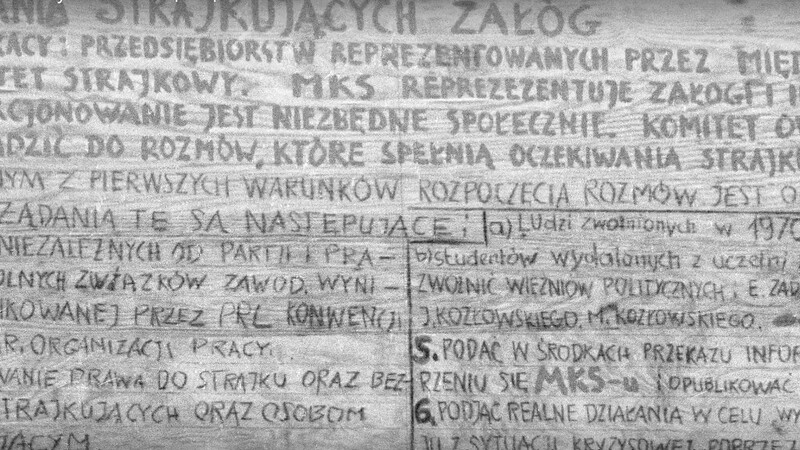 ANIA STRAJKUJĄCYCH ZAŁÓG
KACY: PRZEDSIĘBIORSTW REPREZENTOWANYCH PRZEZ MIĘ
TET STRAJKOWY. MKS REPREZEZENTUJE ZAŁOGI I
CJONOWANIE JEST NIEZBĘDNE SPOŁECZNIE. KOMITET
ADZIĆ DO ROZMÓW, KTÓRE SPEŁNIĄ OCZEKIWANIA STRAJK
NYM Z PIERWSZYCH WARUNKÓW ROZPOCZĘCIA ROZMÓW JEST O
ŻĄDANIA TE SĄ NASTĘPUJĄCE:
NIEZALEŻNYCH OD PARTII I PRA-
OLNYCH ZWIĄZKÓW ZAWOD. WYNI-
IKOWANEJ PRZEZ PRL KONWENCJI
R. ORGANIZACJI PRACY.
WANIE PRAWA DO STRAJKU ORAZ BEZ-
TRAJKUJĄCYCH ORAZ OSOBOM
JĄCYM.
a) Ludzi zwolnionych w 1970
b) studentów wydalonych z uczelni
ZWOLNIĆ WIĘŹNIÓW POLITYCZNYCH: E. ZAD
J. KOZŁOWSKIEGO. M. KOZŁOWSKIEGO.
5. PODAĆ W ŚRODKACH PRZEKAZU INFOR
RZENIU SIĘ MKS-u I OPUBLIKOWAĆ
6. PODJĄĆ REALNE DZIAŁANIA W CELU WY
JU Z SYTUACJI KRYZYSOWEJ POPRZEZ